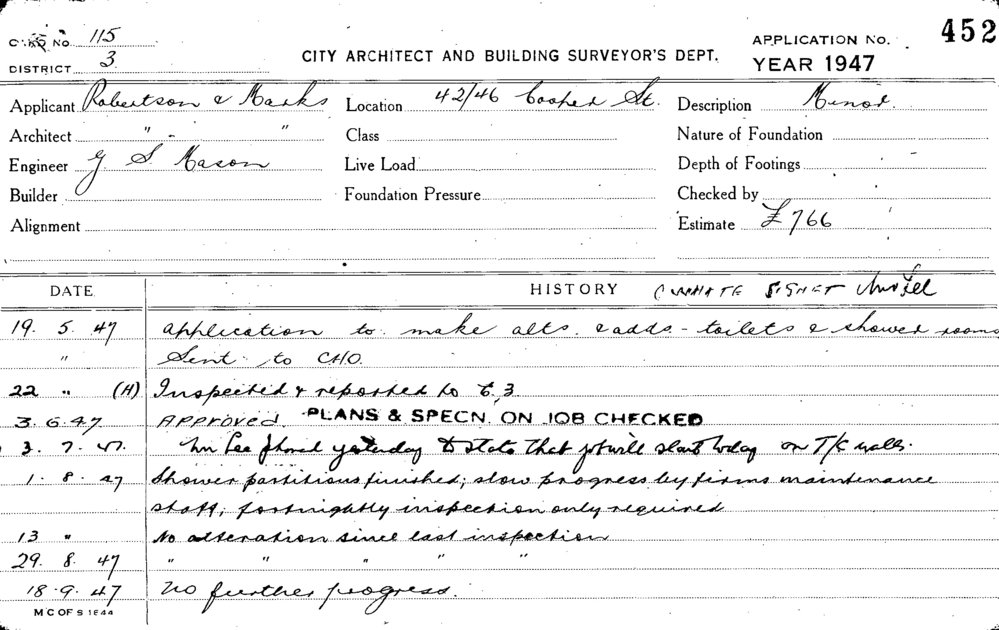 CARD No 115
DISTRICT 3
CITY ARCHITECT AND BUILDING SURVEYOR'S DEPT.
APPLICATION No. 452
YEAR 1947
Applicant Robertson & Marks
Location 42/46 Cooper St.
Description Minor
Architect " - "
Class
Nature of Foundation
Engineer G S Mason
Live Load
Depth of Footings
Builder
Foundation Pressure
Checked by
Alignment
Estimate £766
DATE
HISTORY WHITE SIGNET
19. 5. 47 Application to make alts. & adds - toilets & shower rooms
" Sent to CHO.
22 " (H) Inspected & reported to C.3
3.6.47 Approved. PLANS & SPECN. ON JOB CHECKED
3. 7. 47. Mr Lee phoned yesterday to state that job will start today on T/C walls.
1. 8. 47 Shower partitions finished; slow progress by firms maintenance
staff; fortnightly inspection only required
13 " No alteration since last inspection
29. 8. 47 " " " " "
18.9.47 No further progress.
M C OF S 1844